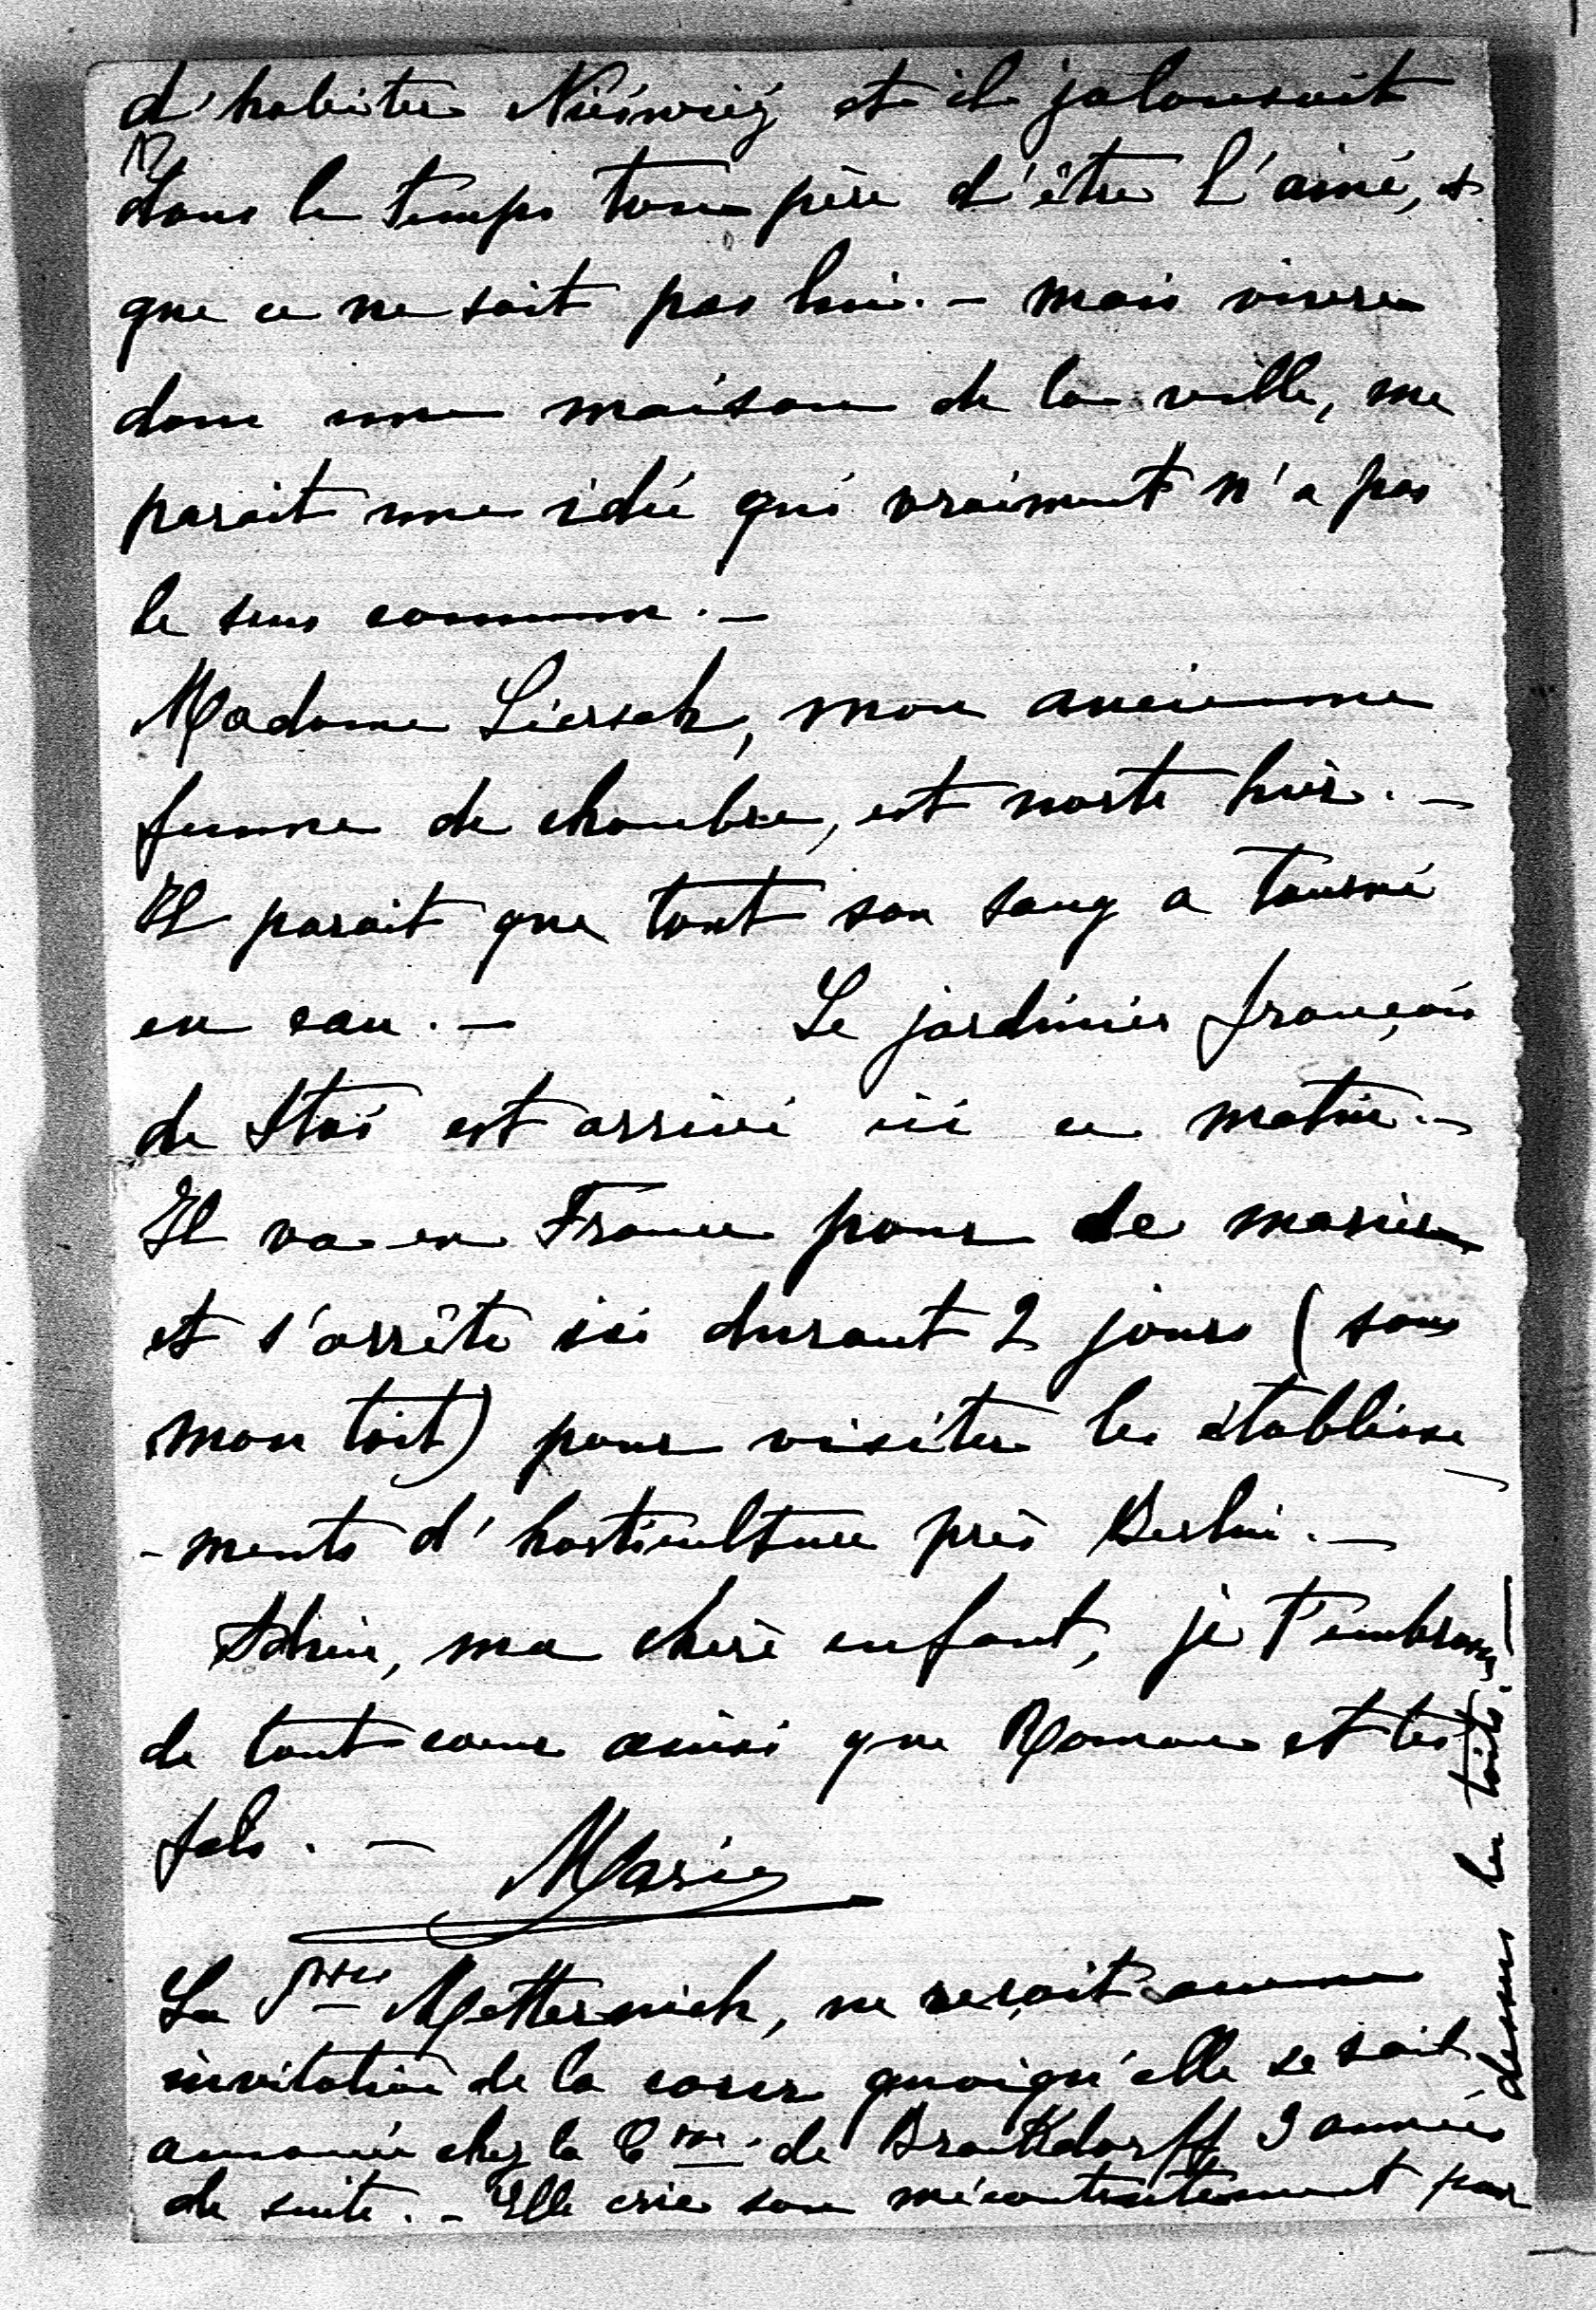 d'habiter Nieśwież et il jalousait
dans le temps ton père d'être l'ainé, et
que ce ne soit pas lui. - mais vivre
dans une maison de la ville, me
parait une idée qui vraiment n'a pas
le sens commun. -
Madame Liersch, mon ancienne
femme de chambre, est morte hier. -
Il parait que tout son sang a tourné
en eau. - Le jardinier français
de Staś est arrivé ici ce matin. -
Il va en France pour se marier
et s'arrête ici durant 2 jours (sous
mon toit) pour visiter les établisse
- ments d'horticulture près Berlin. -
Adieu, ma chère enfant, je t'embrasse
de tout coeur ainsi que Romane et tes
fils. - Marie
La Psse Metternich, ne reçoit aucune
invitation de la cour quoiqu'elle se soit
annoncée chez la Ctsse de Brockdorff 3 années
de suite. - Elle crie son mécontentement par
dessus les toits. -